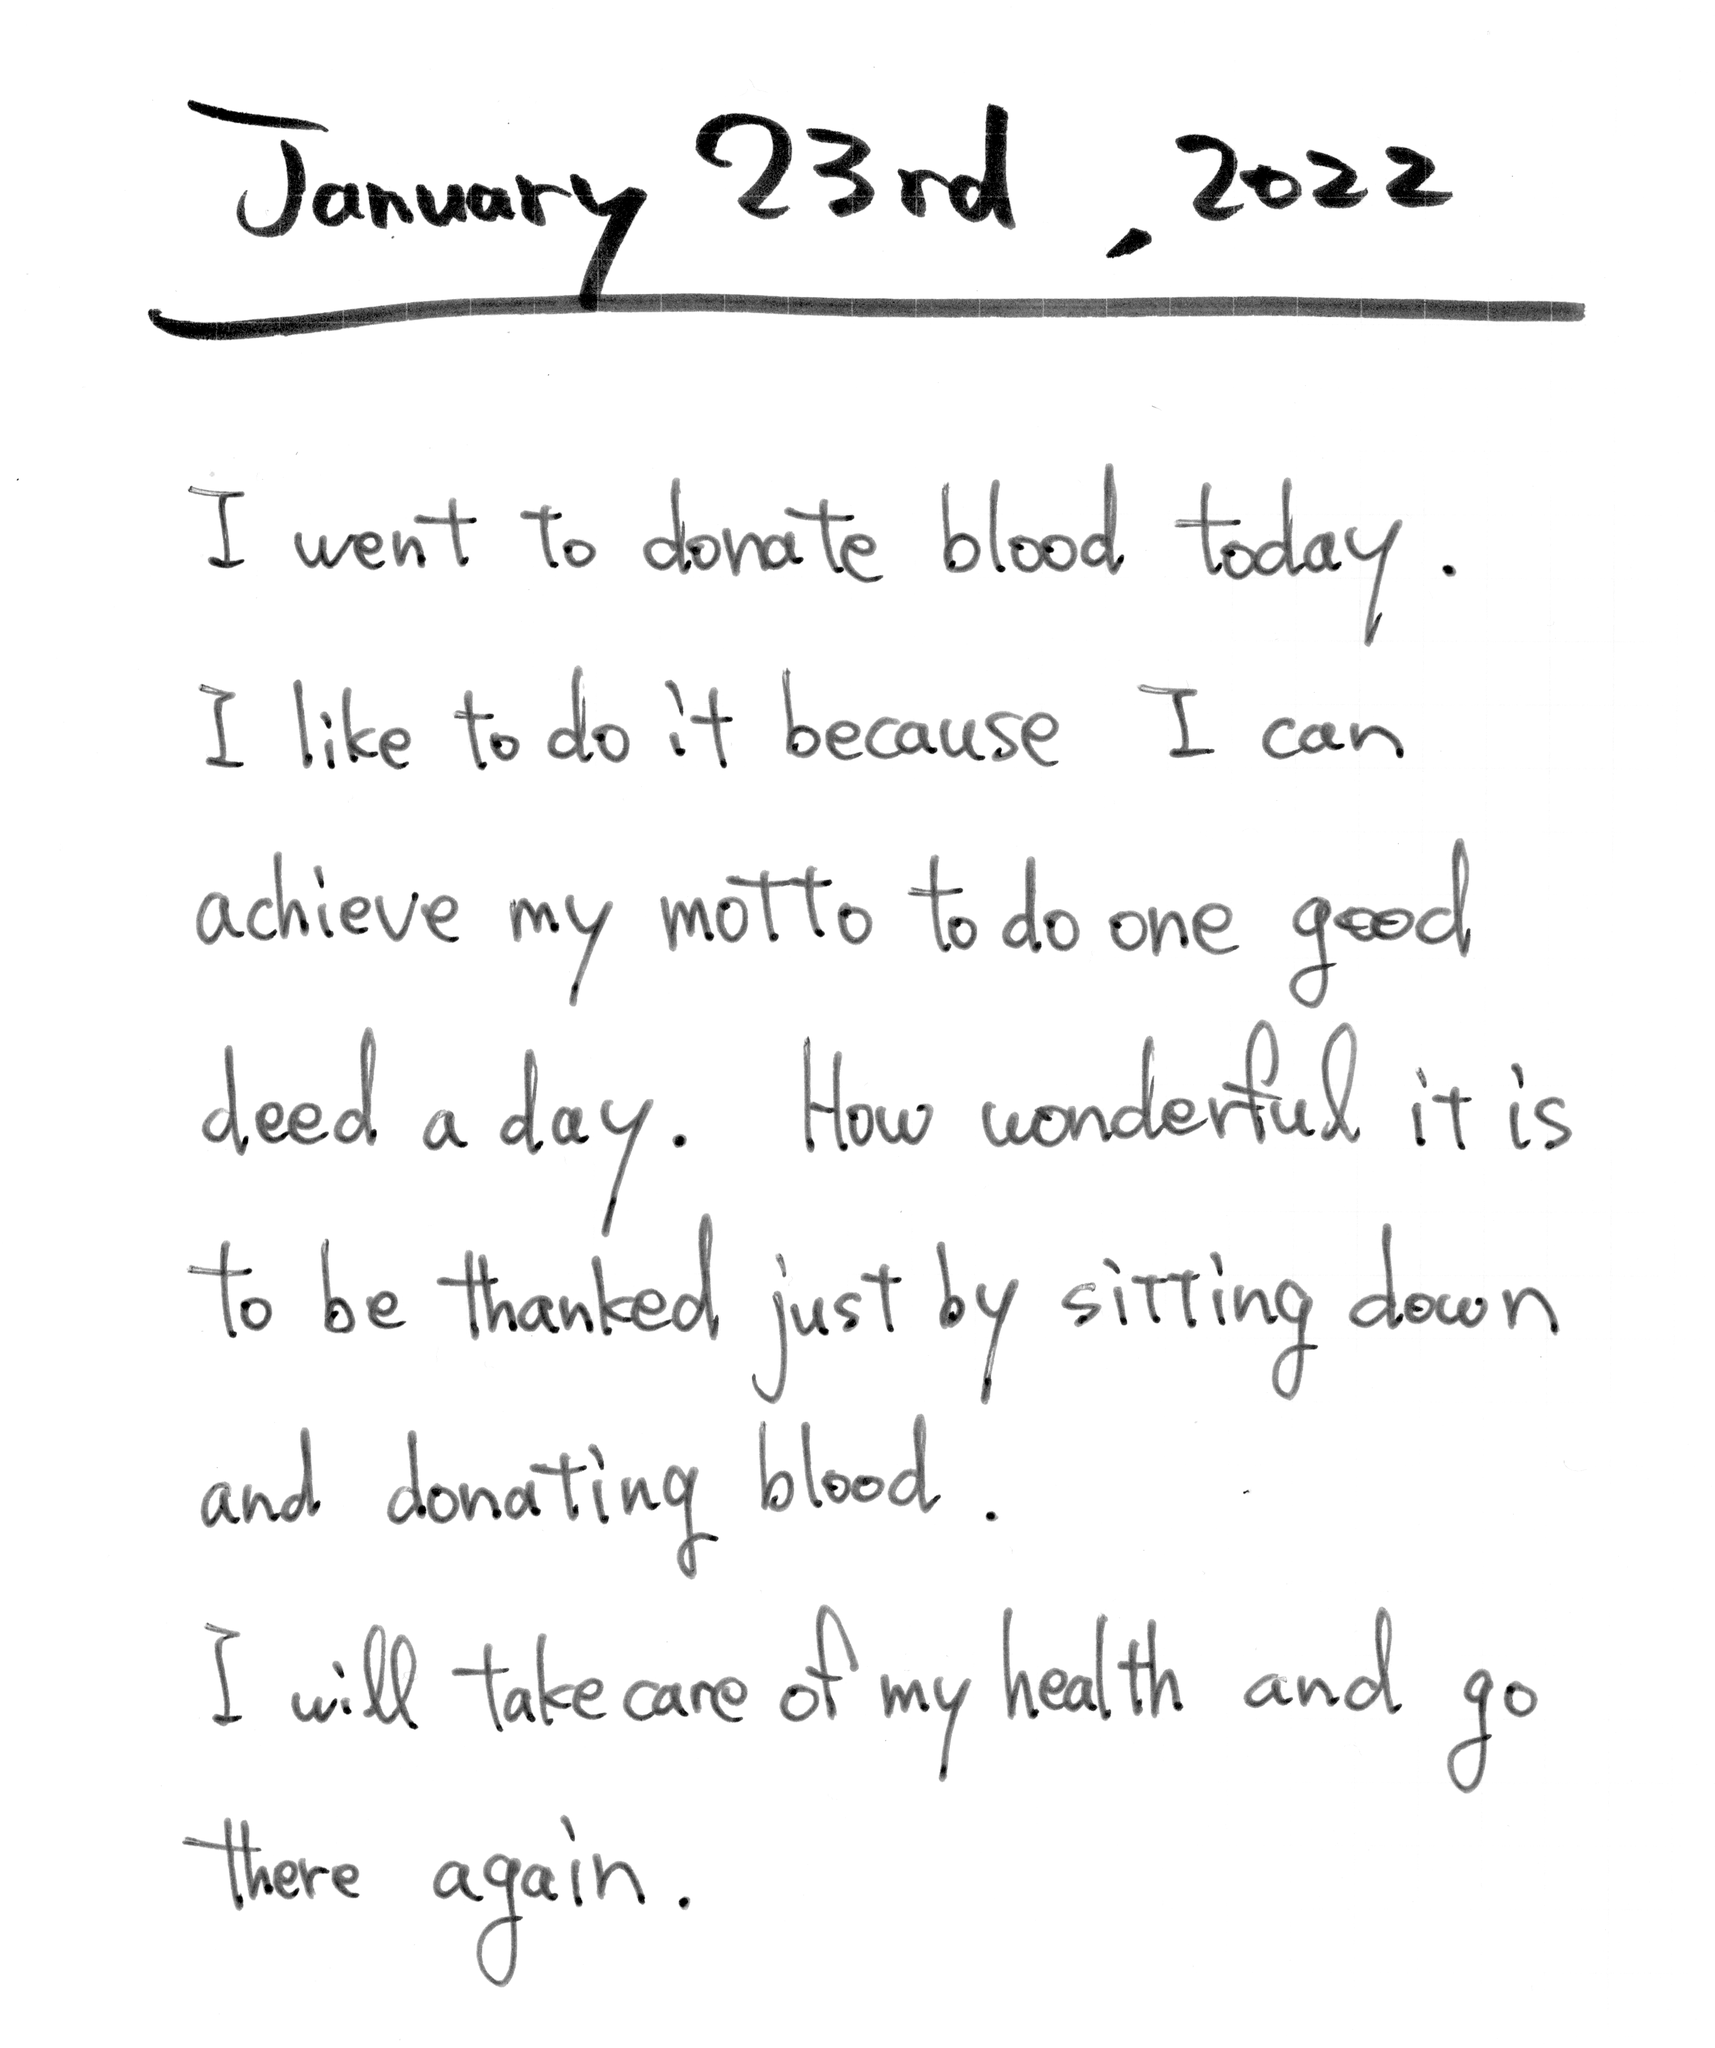 January 23rd, 2022
I went to donate blood today.
I like to do it because I can
achieve my motto to do one good
deed a day. How wonderful it is
to be thanked just by sitting down
and donating blood.
I will take care of my health and go
there again.